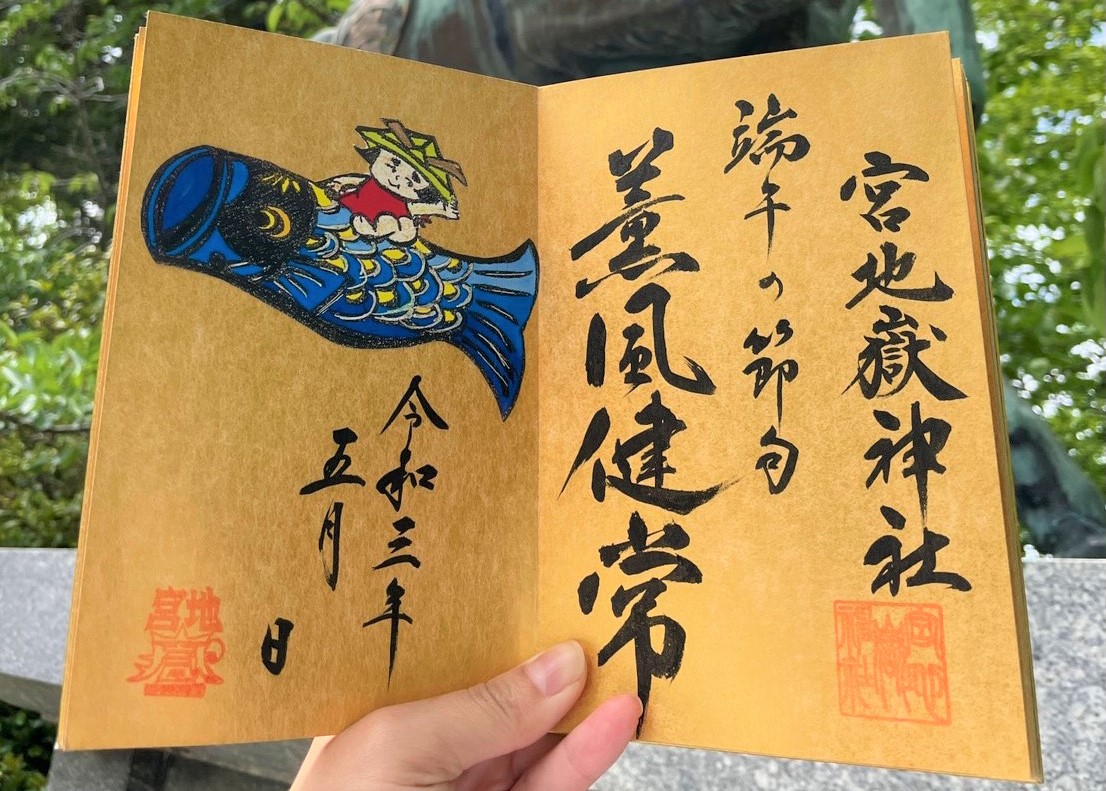 宮地嶽神社
端午の節句
薫風健常
令和三年
五月
日
宮地
嶽